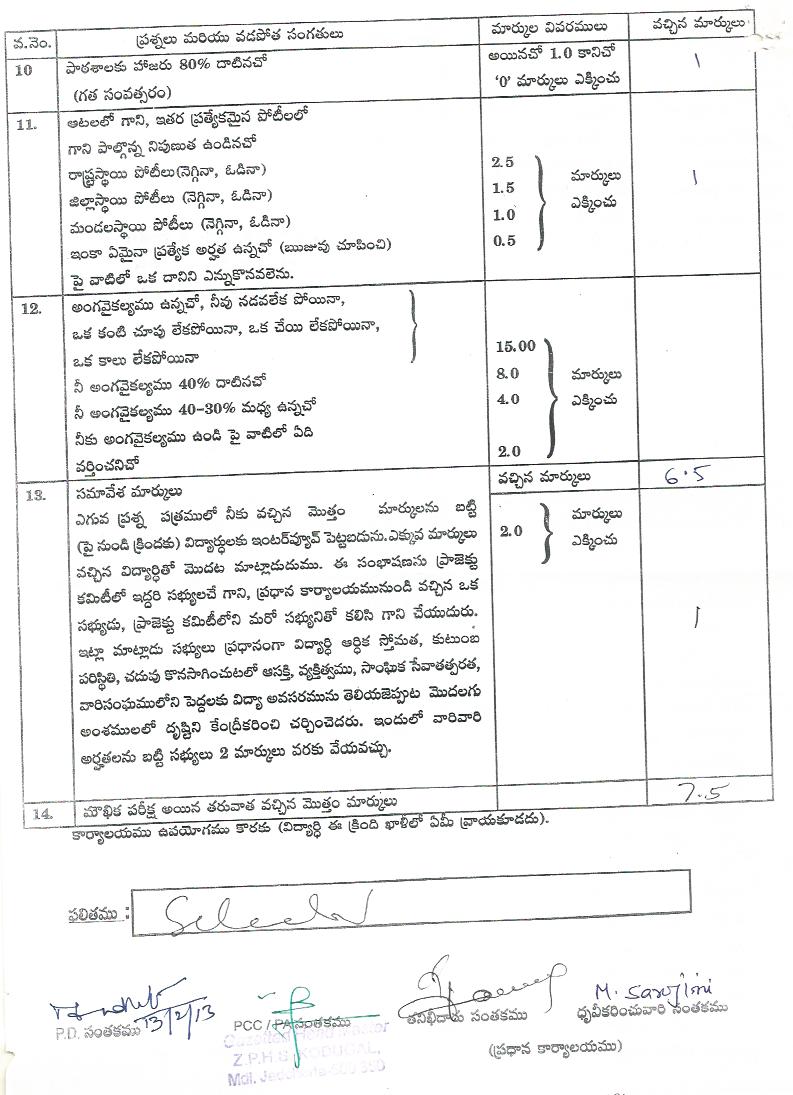 వ.నెం. ప్రశ్నలు మరియు వడపోత సంగతులు మార్కుల వివరములు వచ్చిన మార్కులు
10 పాఠశాలకు హాజరు 80% దాటినచో అయినచో 1.0 కానిచో 1
(గత సంవత్సరం) '0' మార్కులు ఎక్కించు
11. ఆటలలో గాని, ఇతర ప్రత్యేకమైన పోటీలలో
గాని పాల్గొన్న నిపుణుత ఉండినచో
రాష్ట్రస్థాయి పోటీలు(నెగ్గినా, ఓడినా) 2.5 మార్కులు 1
జిల్లాస్థాయి పోటీలు (నెగ్గినా, ఓడినా) 1.5 ఎక్కించు
మండలస్థాయి పోటీలు (నెగ్గినా, ఓడినా) 1.0
ఇంకా ఏమైనా ప్రత్యేక అర్హత ఉన్నచో (ఋజువు చూపించి) 0.5
పై వాటిలో ఒక దానిని ఎన్నుకొనవలెను.
12. అంగవైకల్యము ఉన్నచో, నీవు నడవలేక పోయినా,
ఒక కంటి చూపు లేకపోయినా, ఒక చేయి లేకపోయినా,
ఒక కాలు లేకపోయినా 15.00
నీ అంగవైకల్యము 40% దాటినచో 8.0 మార్కులు
నీ అంగవైకల్యము 40-30% మధ్య ఉన్నచో 4.0 ఎక్కించు
నీకు అంగవైకల్యము ఉండి పై వాటిలో ఏది
వర్తించనిచో 2.0
13. సమావేశ మార్కులు వచ్చిన మార్కులు 6.5
ఎగువ ప్రశ్న పత్రములో నీకు వచ్చిన మొత్తం మార్కులను బట్టి మార్కులు
(పై నుండి క్రిందకు) విద్యార్థులకు ఇంటర్‌వ్యూవ్ పెట్టబడును.ఎక్కువ మార్కులు 2.0 ఎక్కించు
వచ్చిన విద్యార్థితో మొదట మాట్లాడుదుము. ఈ సంభాషణను ప్రాజెక్టు
కమిటీలో ఇద్దరి సభ్యులచే గాని, ప్రధాన కార్యాలయమునుండి వచ్చిన ఒక
సభ్యుడు, ప్రాజెక్టు కమిటీలోని మరో సభ్యునితో కలిసి గాని చేయుదురు. 1
ఇట్లా మాట్లాడు సభ్యులు ప్రధానంగా విద్యార్థి ఆర్థిక స్తోమత, కుటుంబ
పరిస్థితి, చదువు కొనసాగించుటలో ఆసక్తి, వ్యక్తిత్వము, సాంఘిక సేవాతత్పరత,
వారిసంఘములోని పెద్దలకు విద్యా అవసరమును తెలియజెప్పుట మొదలగు
అంశములలో దృష్టిని కేంద్రీకరించి చర్చించెదరు. ఇందులో వారివారి
అర్హతలను బట్టి సభ్యులు 2 మార్కులు వరకు వేయవచ్చు.
14. మౌఖిక పరీక్ష అయిన తరువాత వచ్చిన మొత్తం మార్కులు 7.5
కార్యాలయము ఉపయోగము కొరకు (విద్యార్థి ఈ క్రింది ఖాళీలో ఏమీ వ్రాయకూడదు).
ఫలితము : Selected
M. Sarojini
13/2/13
P.D. సంతకము PCC / PA సంతకము తనిఖీదారు సంతకము ధృవీకరించువారి సంతకము
(ప్రధాన కార్యాలయము)
Z.P.H.S. KODUGAL,